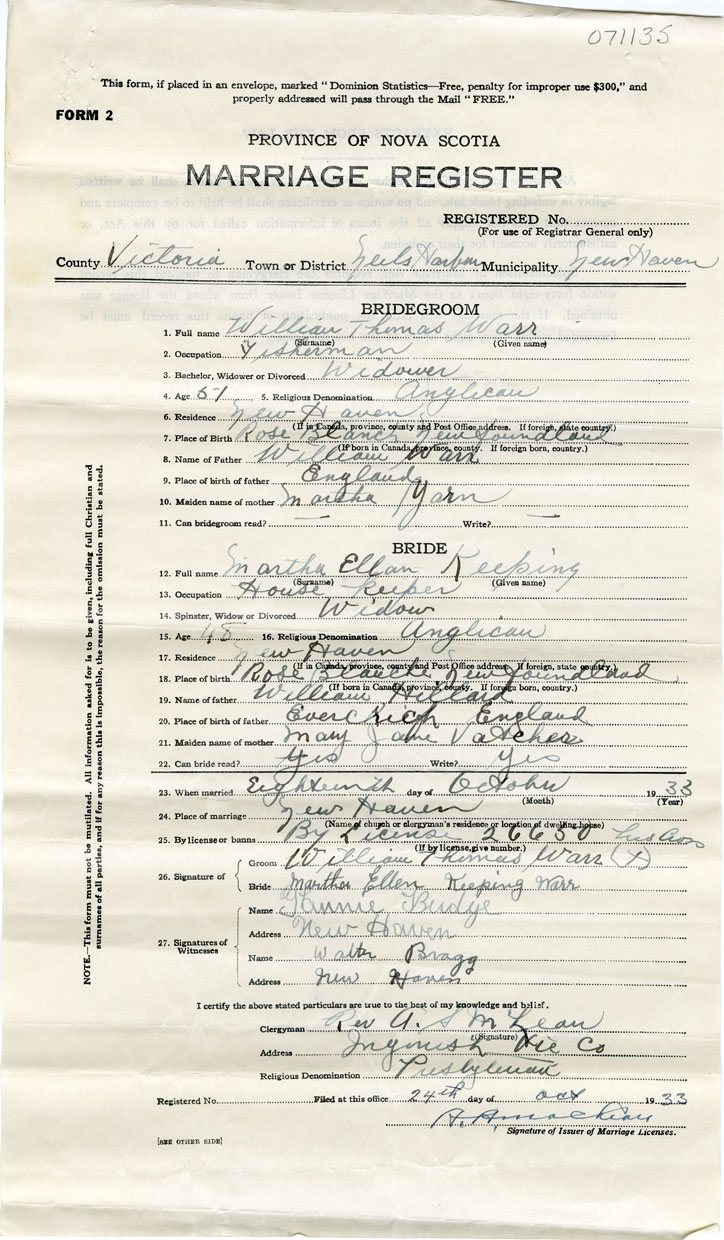 071135
This form, if placed in an envelope, marked “Dominion Statistics—Free, penalty for improper use $300,” and
properly addressed will pass through the Mail “FREE.”
FORM 2
PROVINCE OF NOVA SCOTIA
MARRIAGE REGISTER
REGISTERED No.
(For use of Registrar General only)
County Victoria Town or District Neils Harbour Municipality New Haven
BRIDEGROOM
1. Full name William Thomas Warr
(Surname) (Given name)
2. Occupation Fisherman
3. Bachelor, Widower or Divorced Widower
4. Age 51 5. Religious Denomination Anglican
6. Residence New Haven
(If in Canada, province, county and Post Office address. If foreign, state country.)
7. Place of Birth Rose Blanch Newfoundland
(If born in Canada, province, county. If foreign born, country.)
8. Name of Father William Warr
9. Place of birth of father England
10. Maiden name of mother Martha Yarn
11. Can bridegroom read? — Write? —
BRIDE
12. Full name Martha Ellan Keeping
(Surname) (Given name)
13. Occupation House keeper
14. Spinster, Widow or Divorced Widow
15. Age 48 16. Religious Denomination Anglican
17. Residence New Haven
(If in Canada, province, county and Post Office address. If foreign, state country.)
18. Place of birth Rose Blanche Newfoundland
(If born in Canada, province, county. If foreign born, country.)
19. Name of father William
20. Place of birth of father England
21. Maiden name of mother Mary Jane Vatcher
22. Can bride read? Yes Write? Yes
23. When married Eighteenth day of October 1933
(Month) (Year)
24. Place of marriage New Haven
(Name of church or clergyman's residence or location of dwelling house)
25. By license or banns By License 26630
(If by license, give number.)
26. Signature of
Groom William Thomas Warr (X)
Bride Marther Ellen Keeping Warr
27. Signatures of Witnesses
Name Fannie Budge
Address New Haven
Name Walter Bragg
Address New Haven
I certify the above stated particulars are true to the best of my knowledge and belief.
Clergyman Rev A. S McLean
(Signature)
Address Ingonish Vic Co
Religious Denomination Presbyterian
Registered No. Filed at this office 24th day of Oct 1933
Signature of Issuer of Marriage Licenses.
[SEE OTHER SIDE]
NOTE.—This form must not be mutilated. All information asked for is to be given, including full Christian and
surnames of all parties, and if for any reason this is impossible, the reason for the omission must be stated.